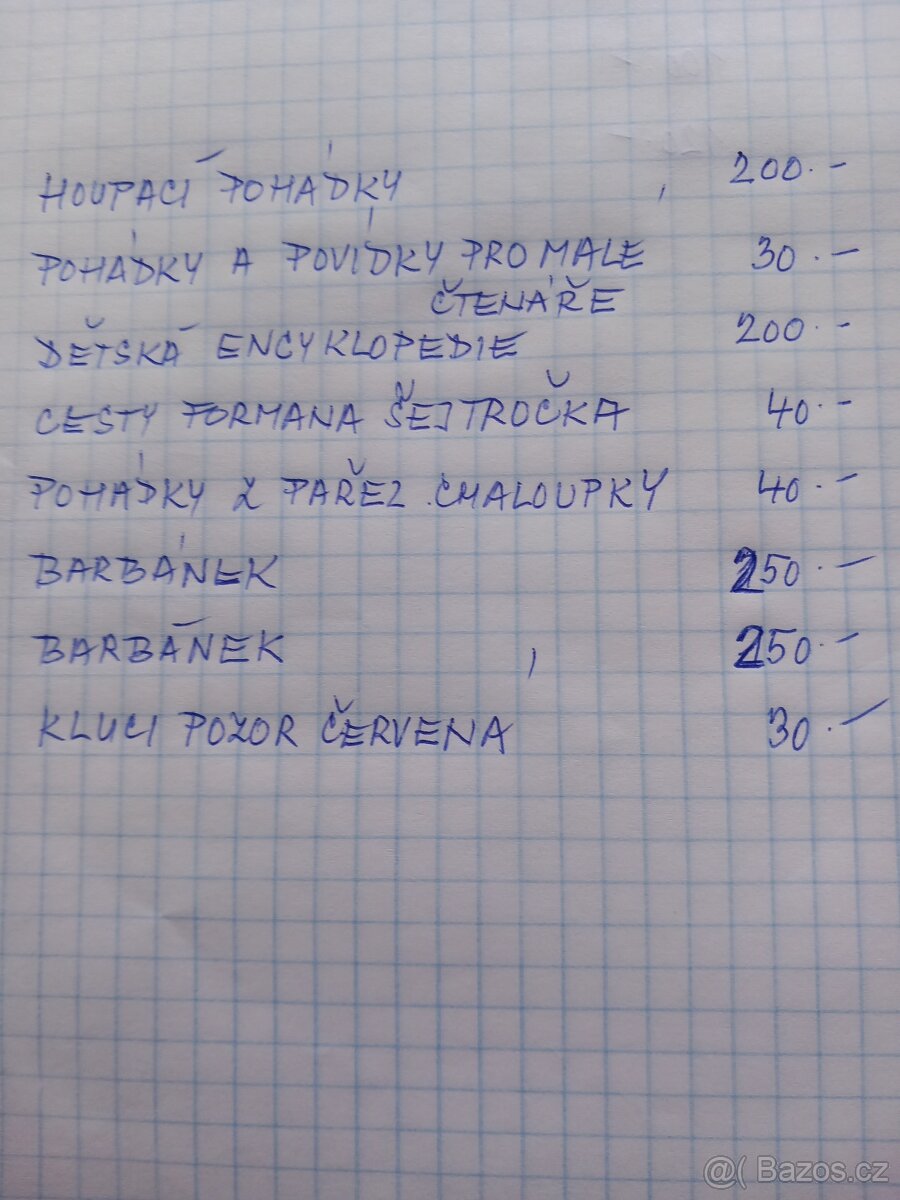 HOUPACÍ POHÁDKY 200.-
POHÁDKY A POVÍDKY PRO MALÉ 30.-
ČTENÁŘE
DĚTSKÁ ENCYKLOPEDIE 200.-
CESTY FORMANA ŠEJTROČKA 40.-
POHÁDKY Z PAŘEZ. CHALOUPKY 40.-
BARBÁNEK 250.-
BARBÁNEK 250.-
KLUCI POZOR ČERVENÁ 30.-
@( Bazos.cz